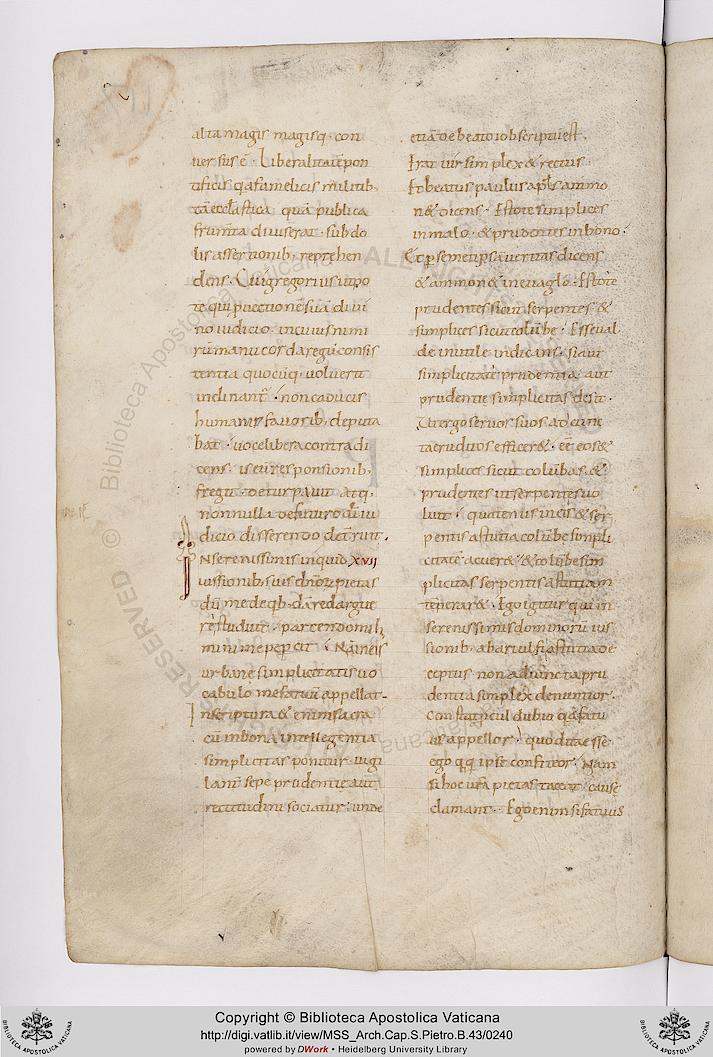 alia magis magisq. con
uersus ē. Liberalitatē pon
tificis q a famelicis militib.
tā eccłastica quā publica
frum̄ta diuiserat. subdo
lis assertionib. reprehen
dens. Cui gregorius utpo
te qui puectionē suā diui
no iudicio. in cuius nimi
rū manu corda regū consis
tentia quocūq. uoluerit
inclinant̃. non caducis
humanis fauorib. deputa
bat. uoce libera contradi
cens. iseū responsionib.
fregit. deturpauit atq.
nonnulla de futuro dī iu
dicio disserendo det̄ruit.
IN serenissimis inquid XVII
iussionib. suis dnorꝝ pietas
dū me de qb.dā redargue
re studuit. parcendo mihi
minime pepercit. Nā in eis
urbane simplicitatis uo
cabulo me fatuū appellat.
In scriptura & enim sacra
cū in bona intellegentia
simplicitas ponitur. uigi
lant̃ sepe prudentie aut
rectitudini sociatur. unde
etiā de beato iob scriptū est.
Erat uir simplex & rectus
Et beatus paulus apłs ammo
n& dicens. Estote simplices
in malo. & prudentes in bono.
Et p semetipsā ueritas dicens
& ammon& in euāglo. Estote
prudentes sicut serpentes &
simplices sicut colūbe. Esse ual
de inutile indicans. si aut
simplicitate prudentia aut
prudentie simplicitas desit.
Ut ergo seruos suos ad cunc
ta eruditos effic&. eē eos &
simplices sicut colūbas. &
prudentes ut serpentes uo
luit. quatenus in eis & ser
pentis astutia colūbe simpli
citatē acuer& & colūbe sim
plicitas serpentis astutiam
tēperar&. Ego igitur qui in
serenissimis dominorū ius
sionib. ab ariulfi astutia de
ceptus non adiuncta pru
dentia simplex denuntior.
constat pcul dubio qa fatu
us appellor. quod ita esse
ego q.q. ipse confiteor. Nam
si hoc ur̄a pietas taceat. cause
clamant. Ego enim si fatuus
Copyright © Biblioteca Apostolica Vaticana
http://digi.vatlib.it/view/MSS_Arch.Cap.S.Pietro.B.43/0240
powered by DWork • Heidelberg University Library